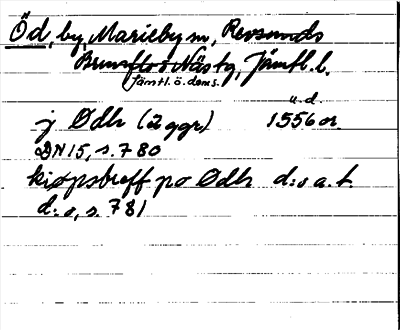 Öd, by, Marieby sn, Revsunds
Brunflo o Näs tg, Jämtl. l.
Jämtl. ö. doms.
u. d.
j Ødh (2 ggr) 1556 or.
DN 15, s. 780
kiøpsbreff po Ødh d:o a. t.
d:o, s. 781